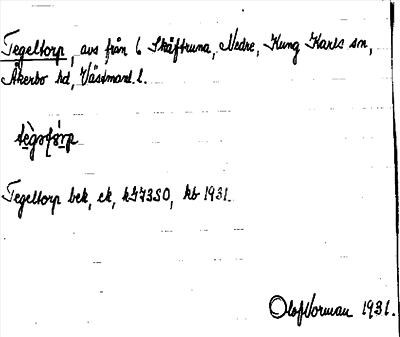 Tegeltorp, avs från 6 Skäftruna, Nedre, Kung Karls sn,
Åkerbo hd, Västmanl. l.
Tegeltorp bek, ek, kJ73SO, kb 1931.
Olof Norman 1931.